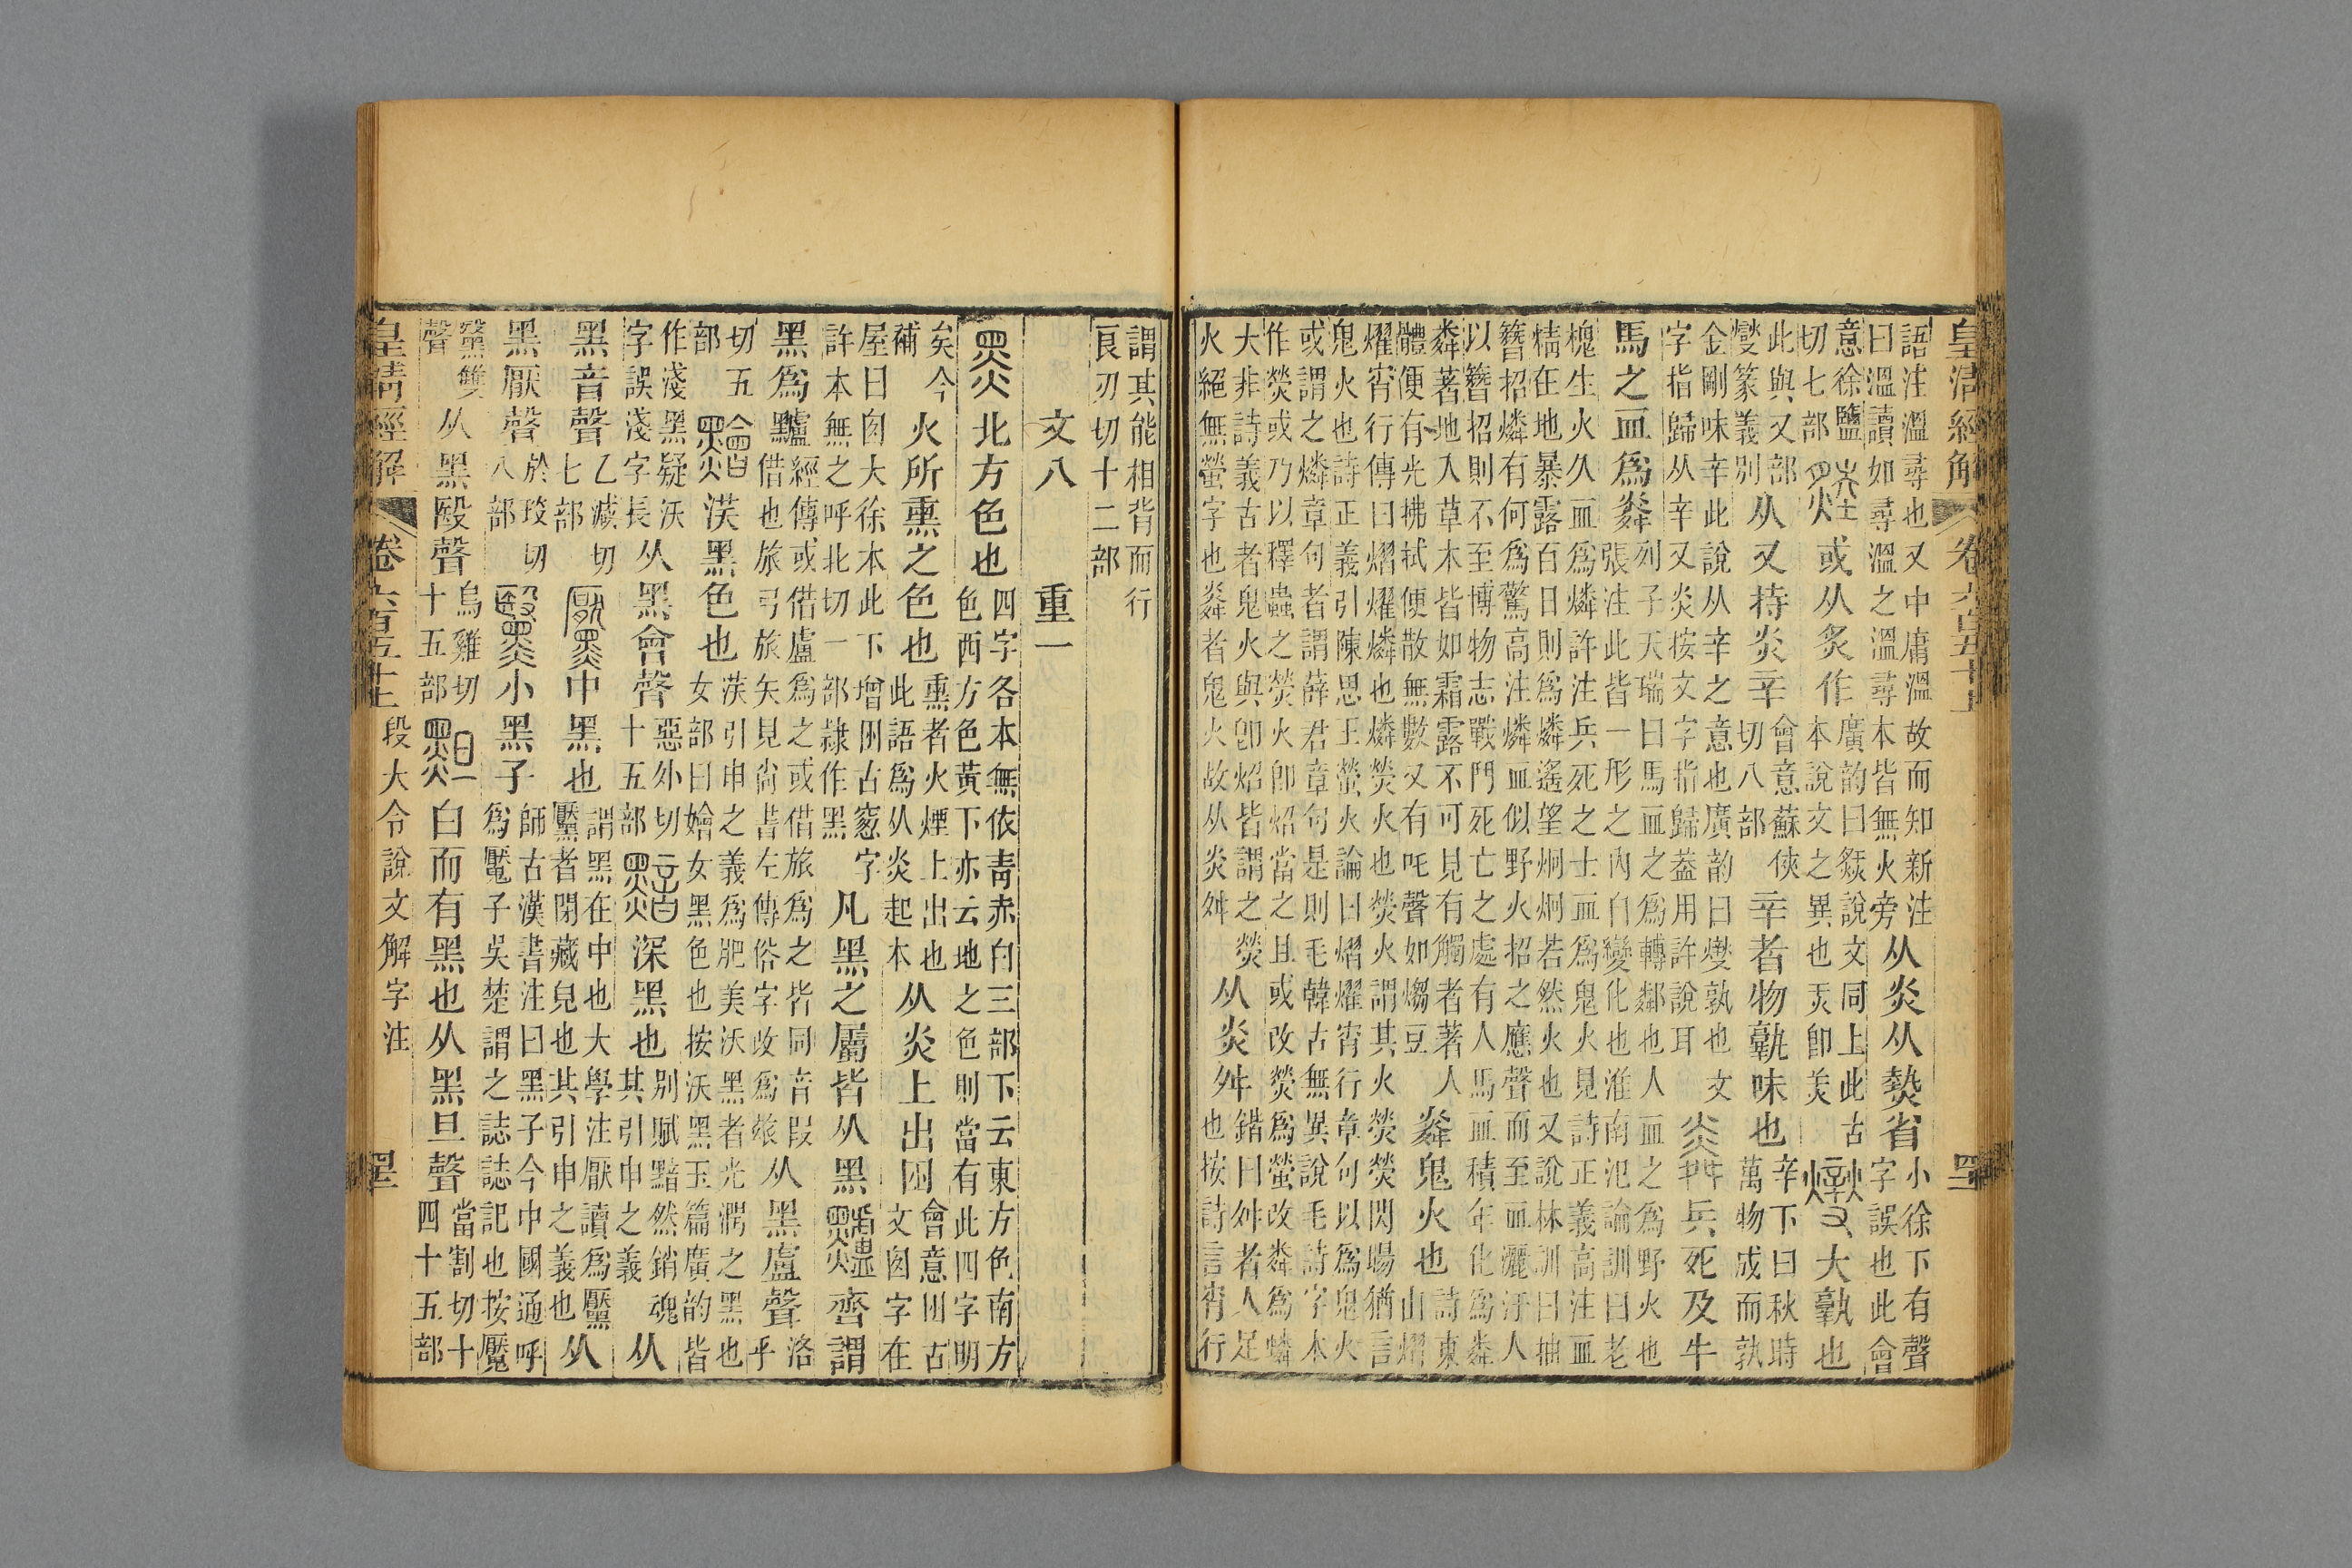 皇清經解 卷六百五十上
語注溫尋也又中庸溫故而知新注曰溫讀如尋溫之溫尋本皆無火旁从炎从𤍽省小徐下有聲字誤也此會
意徐鹽切七部或从炙作廣韵曰錟說文同上此古本說文之異也㶣卽𦎟大𤍨也
此與又部燮篆義別从又持炎辛會意蘇俠切八部辛者物𤍨味也辛下曰秋時萬物成而孰
金剛味辛此說从辛之意也廣韵曰燮孰也文字指歸从辛又炎按文字指歸葢用許說耳兵死及牛
馬之血爲粦列子天瑞曰馬血之爲轉鄰也人血之爲野火也張注此皆一形之內自變化也淮南氾論訓曰老
槐生火久血爲燐許注兵死之士血爲鬼火見詩正義高注血精在地暴露百日則爲燐遙望炯炯若然火也又說林訓曰抽
簪招燐有何爲驚高注燐血似野火招之應聲而至血灑汙人以簪招則不至博物志戰鬥死亡之處有人馬血積年化爲粦
粦著地入草木皆如霜露不可見有觸者著人體便有光拂拭便散無數又有吒聲如𤎅豆粦鬼火也詩東山熠
燿宵行傳曰熠燿燐也燐熒火也熒火謂其火熒熒閃暘猶言鬼火也詩正義引陳思王螢火論曰熠燿宵行章句以爲鬼火
或謂之燐章句者謂薛君章句是則毛韓古無異說毛詩字本作熒或乃以釋蟲之熒火卽炤當之且或改熒爲螢改粦爲蟒
大非詩義古者鬼火與卽炤皆謂之熒火絕無螢字也粦者鬼火故从炎舛从炎舛鍇曰舛者人足也按詩言宵行
謂其能相背而行良刃切十二部
文八 重一
黑北方色也四字各本無依青赤白三部下云東方色南方色西方色黃下亦云地之色則當有此四字明
矣今補火所熏之色也熏者火煙上出也此語爲从炎起本从炎上出囪會意囪古文囱字在
屋曰囱大徐本此下增囪古窻字許本無之呼北切一部隷作黑凡黑之屬皆从黑𪒠齊謂
黑爲黸經傳或借盧爲之或借旅爲之皆同音叚借也旅弓旅矢見尙書左傳俗字改爲玈从黑盧聲洛乎
切五部黵渼黑色也渼引申之義爲肥美沃黑者光潤之黑也女部曰嬒女黑色也按沃黑玉篇廣韵皆
作淺黑疑沃字誤淺字長从黑會聲惡外切十五部黯深黑也別賦黯然銷魂其引申之義从
黑音聲乙減切七部黶中黑也謂黑在中也大學注厭讀爲黶黶者閉藏皃也其引申之義也从
黑厭聲於琰切八部黳小黑子師古漢書注曰黑子今中國通呼爲黶子吳楚謂之誌誌記也按黶
黳雙聲从黑殹聲烏雞切十五部𪐻白而有黑也从黑旦聲當割切十四十五部
皇清經解 卷六百五十上 段大令說文解字注